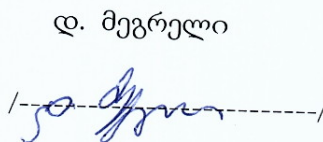 დ. მეგრელი